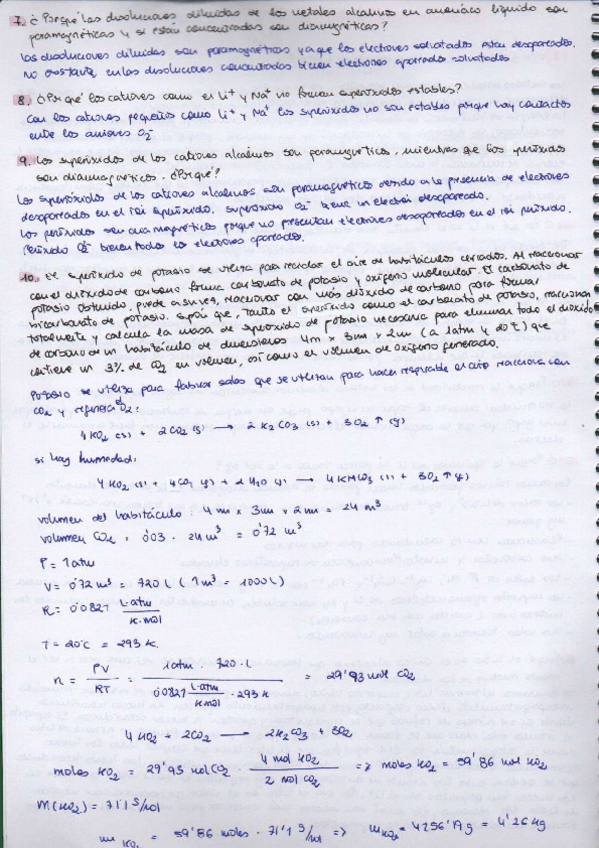 7. ¿Porqué las disoluciones diluidas de los metales alcalinos en amoníaco líquido son
paramagnéticas y si están concentradas son diamagnéticas?
Las disoluciones diluidas son paramagnéticas ya que los electrones solvatados están desapareados.
No obstante, en las disoluciones concentradas tienen electrones apareados solvatados.
8. ¿Por qué los cationes como el Li⁺ y Na⁺ no forman superóxidos estables?
Con los cationes pequeños como Li⁺ y Na⁺ los superóxidos no son estables porque hay contactos
entre los aniones O₂⁻
9. Los superóxidos de los cationes alcalinos son paramagnéticos, mientras que los peróxidos
son diamagnéticos. ¿Porqué?
Los superóxidos de los cationes alcalinos son paramagnéticos debido a la presencia de electrones
desapareados en el ión superóxido. Superóxido O₂⁻ tiene un electrón desapareado.
Los peróxidos son diamagnéticos porque no presentan electrones desapareados en el ión peróxido.
Peróxido O₂²⁻ tienen todos los electrones apareados.
10. El superóxido de potasio se utiliza para reciclar el aire de habitáculos cerrados. Al reaccionar
con el dióxido de carbono forma carbonato de potasio y oxígeno molecular. El carbonato de
potasio obtenido, puede a su vez, reaccionar con más dióxido de carbono para formar
bicarbonato de potasio. Supón que, tanto el superóxido como el carbonato de potasio, reaccionan
totalmente y calcula la masa de superóxido de potasio necesaria para eliminar todo el dióxido
de carbono de un habitáculo de dimensiones 4m x 3m x 2m (a 1atm y 20°C) que
contiene un 3% de CO₂ en volumen, así como el volumen de oxígeno generado.
Potasio se utiliza para fabricar solos que se utilizan para hacer respirable el aire reacciona con
CO₂ y regenera el O₂:
4 KO₂ (s) + 2CO₂ (g) → 2 K₂CO₃ (s) + 3O₂ ↑ (g)
si hay humedad:
4 KO₂ (s) + 4CO₂ (g) + 2 H₂O (g) → 4 KHCO₃ (s) + 3O₂ ↑ (g)
volumen del habitáculo: 4 m x 3m x 2m = 24 m³
volumen CO₂ = 0'03 · 24 m³ = 0'72 m³
P = 1 atm
V = 0'72 m³ = 720 L (1 m³ = 1000 L)
R = 0'0821 L·atm / K·mol
T = 20°C = 293 K.
n = PV / RT = 1atm · 720 · L / 0'0821 L·atm / K·mol · 293 K = 29'93 mol CO₂
4 KO₂ + 2CO₂ → 2K₂CO₃ + 3O₂
moles KO₂ = 29'93 mol CO₂ · 4 mol KO₂ / 2 mol CO₂ => moles KO₂ = 59'86 mol KO₂
M(KO₂) = 71'1 g/mol
m KO₂ = 59'86 moles · 71'1 g/mol => m KO₂ = 4256'1 g = 4'26 Kg